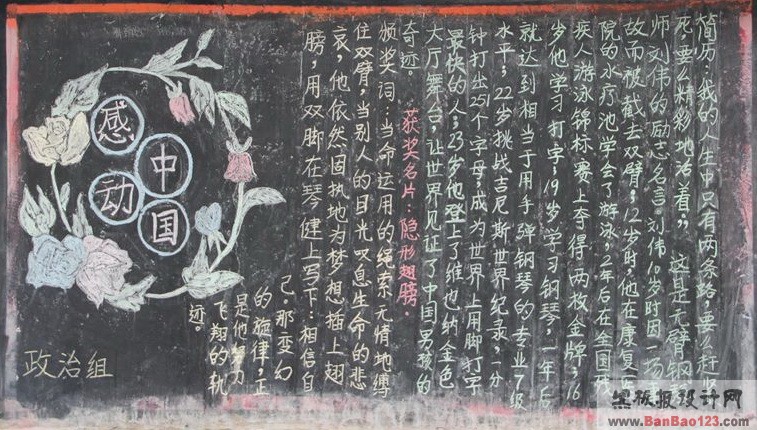 简历：我的人生中只有两条路，要么赶紧
死，要么精彩地活着。”这是无臂钢琴
师刘伟的励志名言。刘伟10岁时因一场事
故而被截去双臂；12岁时，他在康复医
院的水疗池学会了游泳，2年后在全国残
疾人游泳锦标赛上夺得两枚金牌；16
岁他学习打字；19岁学习钢琴，一年后
就达到相当于用手弹钢琴的专业7级
水平；22岁挑战吉尼斯世界纪录，一分
钟打出251个字母，成为世界上用脚打字
最快的人；23岁他登上了维也纳金色
大厅舞台，让世界见证了中国男孩的
奇迹。
获奖名片：隐形翅膀。
颁奖词：当命运用的绳索无情地缚
住双臂，当别人的目光叹息生命的悲
哀，他依然固执地为梦想插上翅
膀，用双脚在琴健上写下：相信自
己。那变幻
的旋律，正
是他努力
飞翔的轨
迹。
感动
中国
政治组
黑板报设计网
www.BanBao123.com